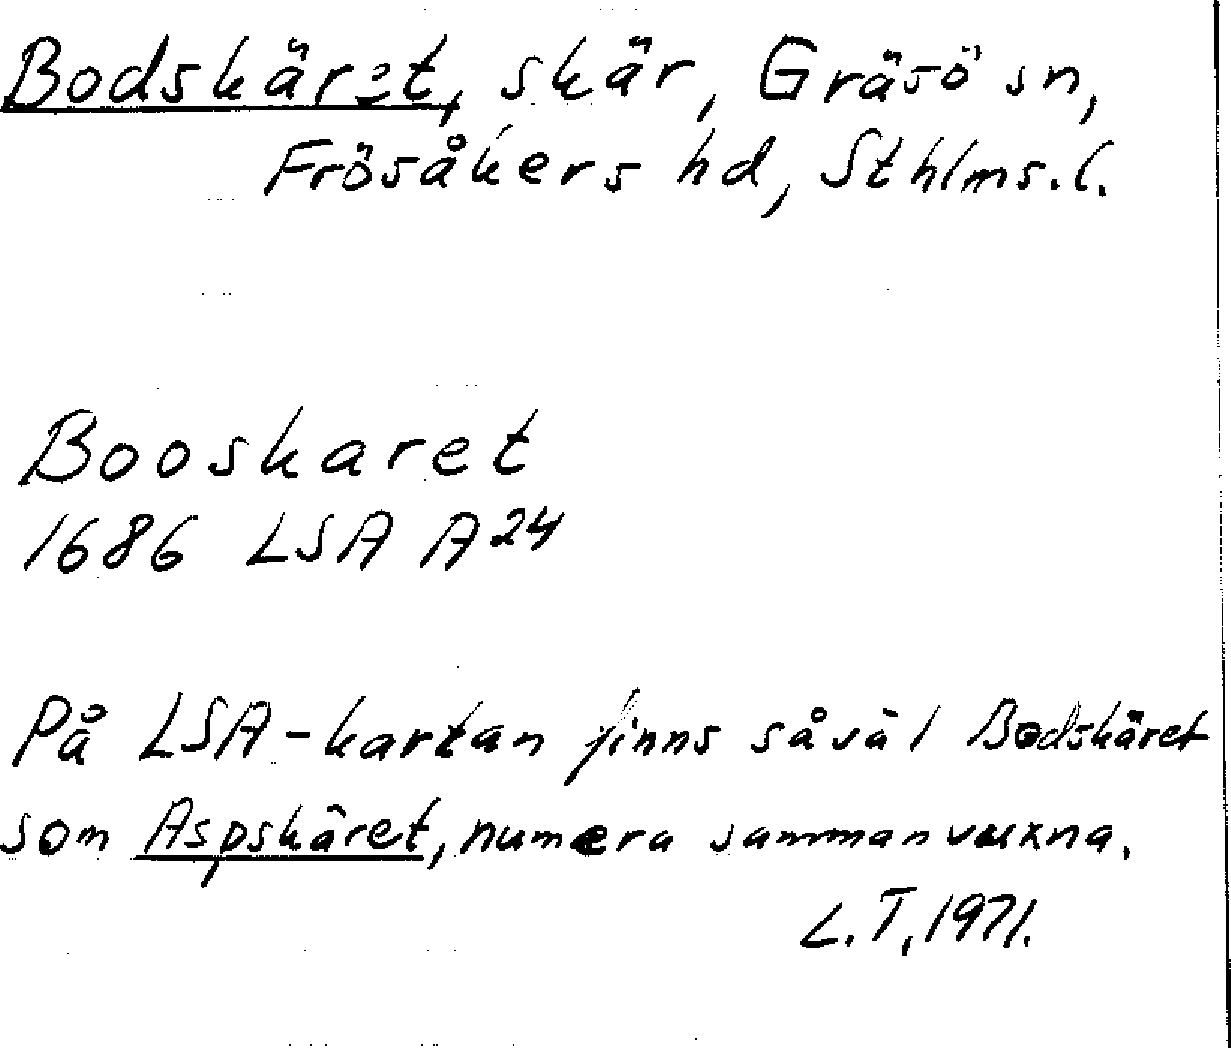 Bodskäret, skär, Gräsö sn,
Frösåkers hd, Sthlms.l.
Booskaret
1686 LSA A24
På LSA-kartan finns såväl Bodskäret
som Aspskäret, numera sammanvuxna.
L.T, 1971.